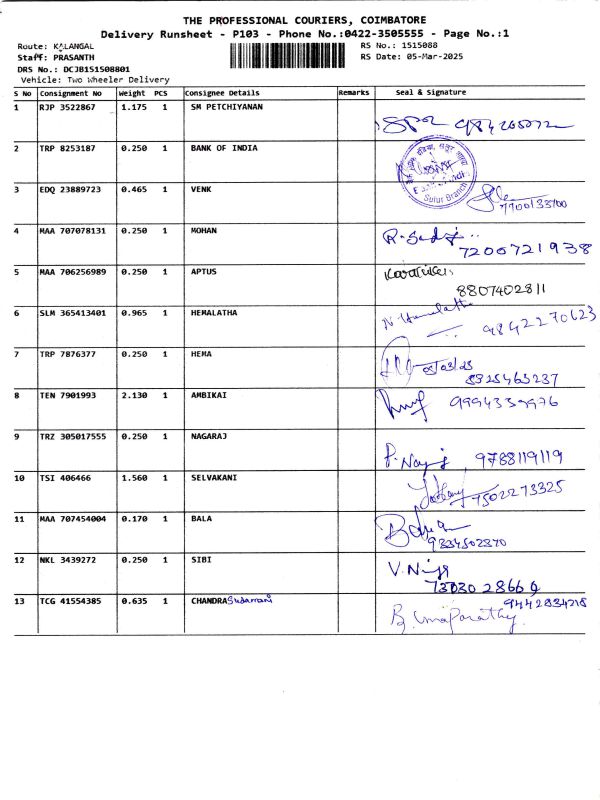 THE PROFESSIONAL COURIERS, COIMBATORE
Delivery Runsheet - P103 - Phone No.:0422-3505555 - Page No.:1
Route: KALANGAL
RS No.: 1515088
Staff: PRASANTH
RS Date: 05-Mar-2025
DRS No.: DCJB151508801
Vehicle: Two Wheeler Delivery
S No Consignment No Weight PCS Consignee Details Remarks Seal & Signature
1 RJP 3522867 1.175 1 SM PETCHIYANAN
2 TRP 8253187 0.250 1 BANK OF INDIA
Sulur Branch
3 EDQ 23889723 0.465 1 VENK
7900133700
4 MAA 707078131 0.250 1 MOHAN
7200721938
5 MAA 706256989 0.250 1 APTUS
8807402811
6 SLM 365413401 0.965 1 HEMALATHA
N. Hemalatha
9842270623
7 TRP 7876377 0.250 1 HEMA
05/03/25
8 TEN 7901993 2.130 1 AMBIKAI
9 TRZ 305017555 0.250 1 NAGARAJ
9788119119
10 TSI 406466 1.560 1 SELVAKANI
7502273325
11 MAA 707454004 0.170 1 BALA
Bala
9334502370
12 NKL 3439272 0.250 1 SIBI
13 TCG 41554385 0.635 1 CHANDRA
9442834218
B. Umaparathy